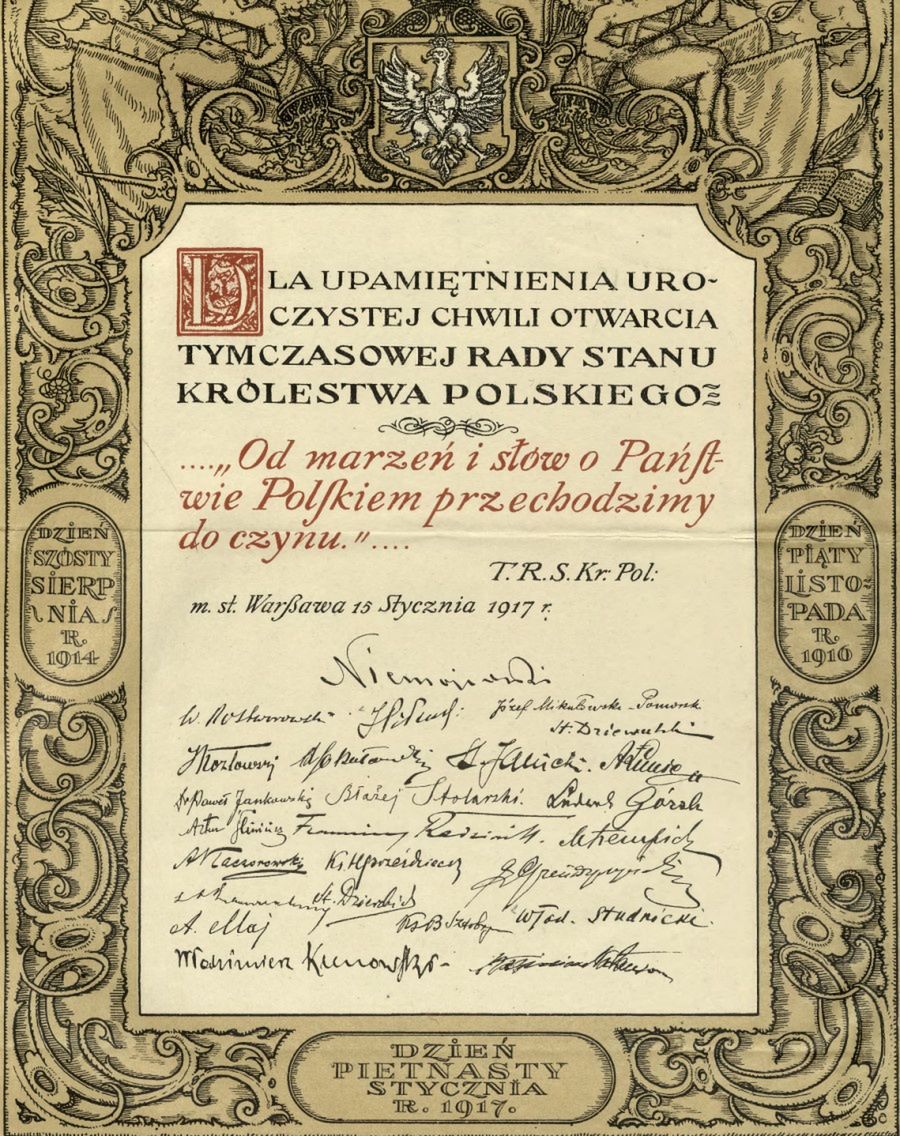 DLA UPAMIĘTNIENIA URO-
CZYSTEJ CHWILI OTWARCIA
TYMCZASOWEJ RADY STANU
KRÓLESTWA POLSKIEGO
....„Od marzeń i słów o Pańſt-
wie Polſkiem przechodzimy
do czynu.”....
T. R. S. Kr: Pol:
m. st. Warßawa 15 Stycznia 1917 r.
DZIEŃ
SZÓSTY
SIERP
NIA
R.
1914
DZIEŃ
PIĄTY
LISTO-
PADA
R.
1916
Niemojowski
W. Rostworowski Józef Mikułowski-Pomorski
St. Dziewulski
Dr Paweł Jankowski Błażej Stolarski. Ludwik Górski
Artur Śliwiński Franciszek Radziwiłł.
A Kaczorowski
St. Dzierzbicki
A. Maj Wład. Studnicki.
Włodzimierz Kunowski.
DZIEŃ
PIETNASTY
STYCZNIA
R. 1917.